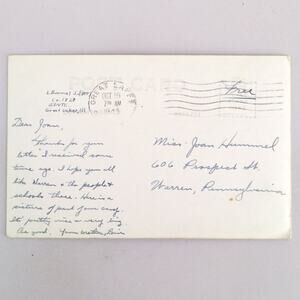 POST CARD
Co. 1829
Great Lakes, Ill.
GREAT LAKES
OCT
AM
Free
Dear Joan,
Thanks for your
letter I received some
time ago. I hope you all
like Warren & the people &
schools there. Here is a
picture of part of our camp.
Its pretty nice & very big.
As good.
Miss Joan Hummel
606 Prospect St.
Warren, Pennsylvania